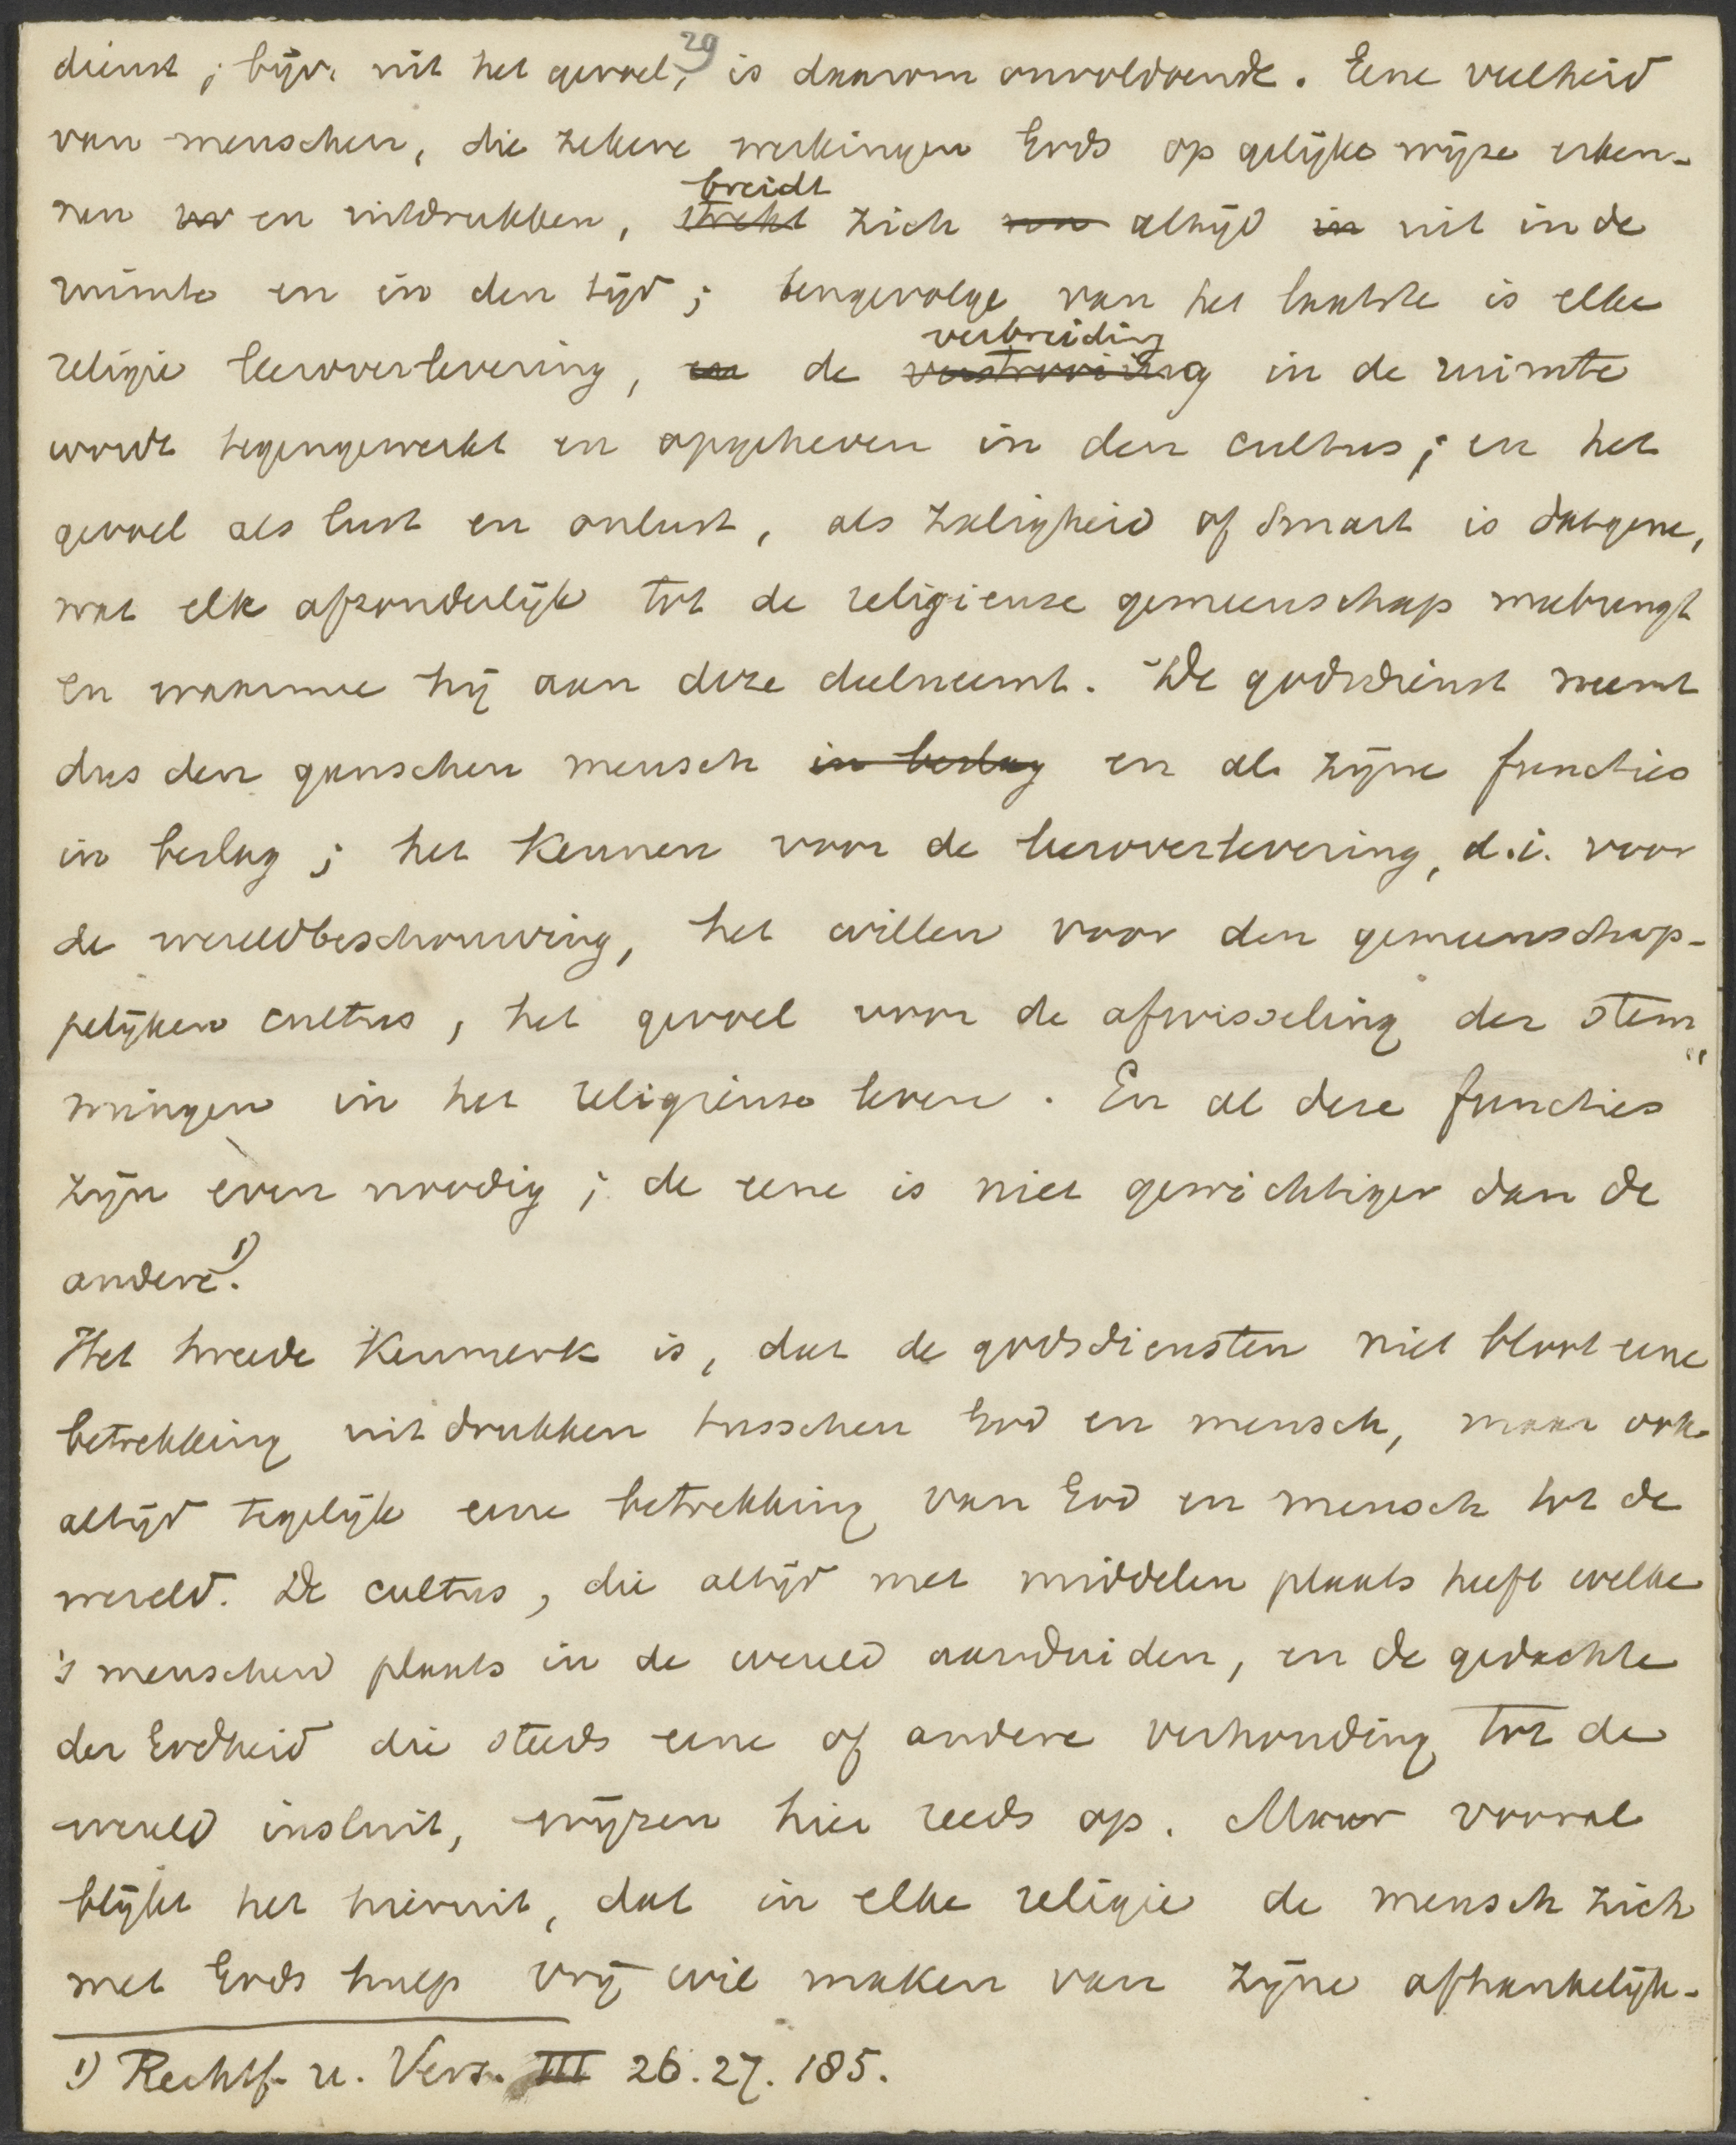 29
dienst, bijv. uit het gevoel, is daarom onvoldoende. Eene veelheid
van menschen, die zekere werkingen Gods op gelijke wijze erken-
nen en uitdrukken, breidt
strekt zich altijd in uit in de
ruimte en in den tijd; tengevolge van het laatste is elke
religie leeroverlevering, en de verbreiding
verstrooiing in de ruimte
wordt tegengewerkt en opgeheven in den cultus; en het
gevoel als lust en onlust, als zaligheid of smart is datgene,
wat elk afzonderlijk tot de religieuze gemeenschap meebrengt
en waarmee hij aan deze deelneemt. De godsdienst neemt
dus den ganschen mensch in beslag en al zijne functies
in beslag; het kennen voor de leeroverlevering, d.i. voor
de wereldbeschouwing, het willen voor den gemeenschap-
pelijken cultus, het gevoel voor de afwisseling der stem"
mingen in het religieuse leven. En al deze functies
zijn even noodig; de eene is niet gewichtiger dan de
andere. 1)
Het tweede Kenmerk is, dat de godsdiensten niet bloot eene
betrekking uitdrukken tusschen God en mensch, maar ook
altijd tegelijk eene betrekking van God en mensch tot de
wereld. De cultus, die altijd met middelen plaats heeft welke
's menschen plaats in de wereld aanduiden, en de gedachte
der Godheid die steeds eene of andere verhouding tot de
wereld insluit, wijzen hier reeds op. Maar vooral
blijkt het hieruit, dat in elke religie de mensch zich
met Gods hulp vrij wil maken van zijne afhankelijk-
1) Rechtf. u. Vers. III 26. 27. 185.